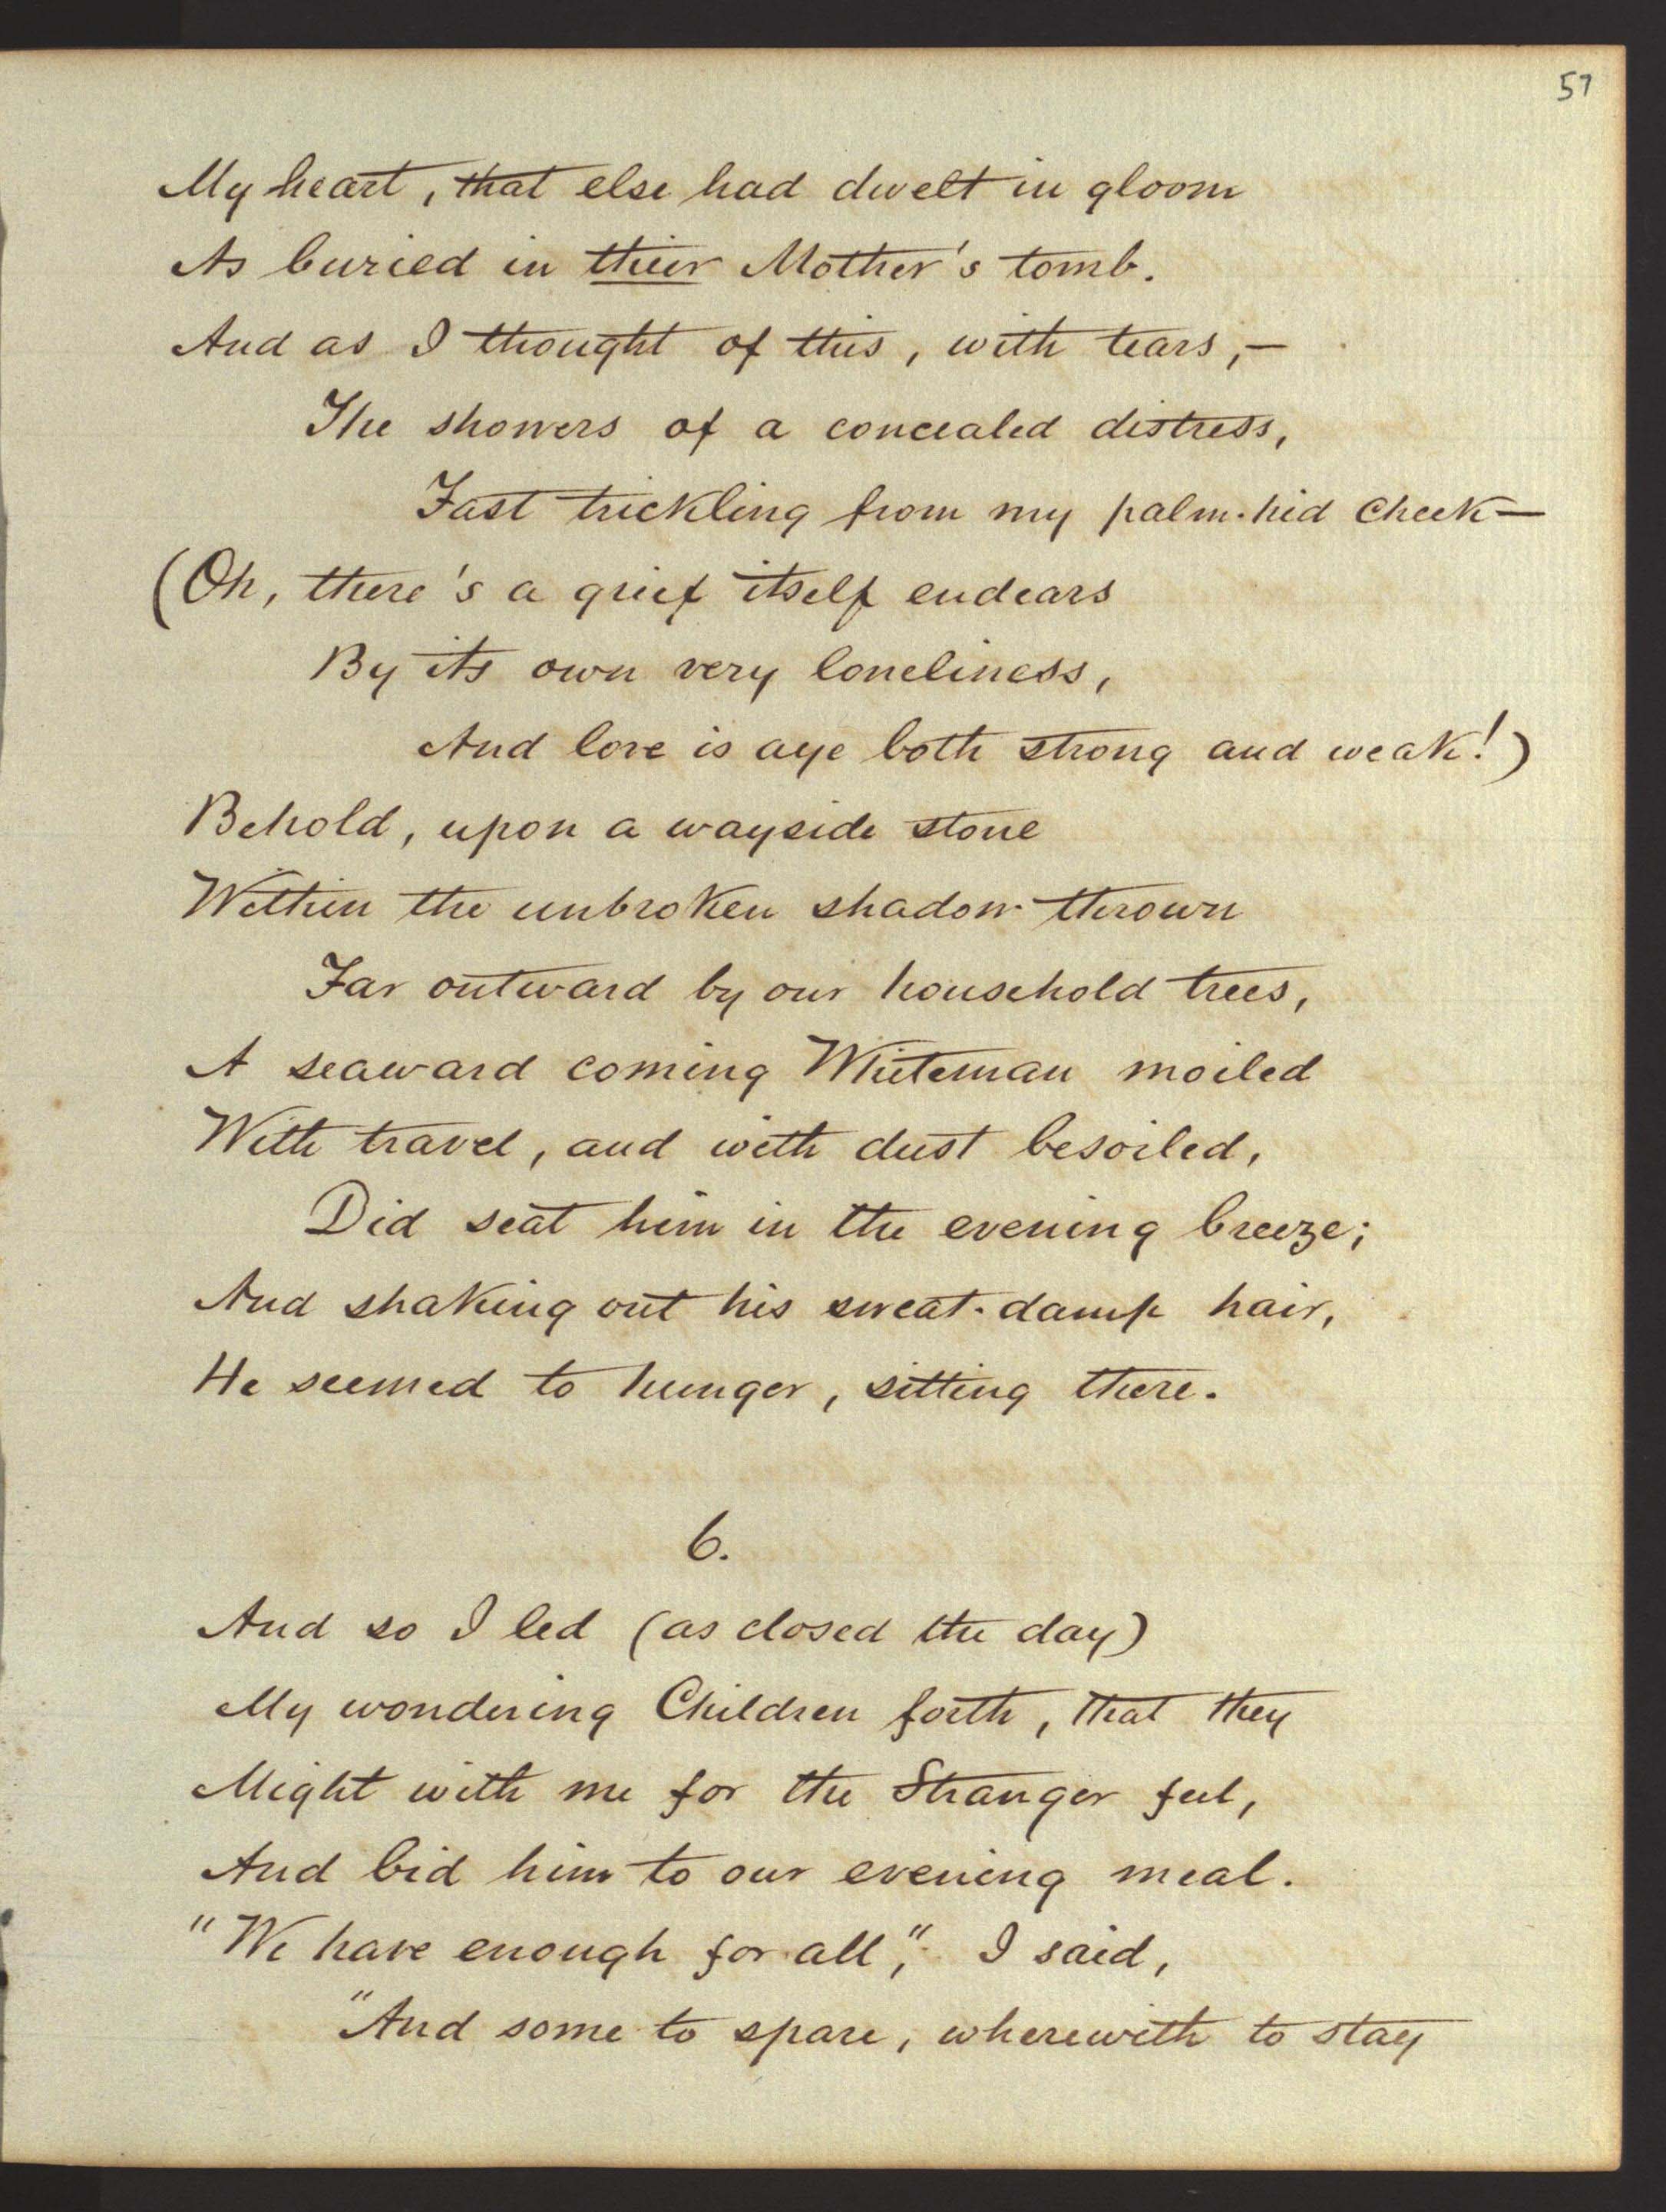 57
My heart, that else had dwelt in gloom
As buried in their Mother's tomb.
And as I thought of this, with tears,—
The showers of a concealed distress,
Fast trickling from my palm-hid cheek—
(Oh, there's a grief itself endears
By its own very loneliness,
And love is aye both strong and weak!)
Behold, upon a wayside stone
Within the unbroken shadow thrown
Far outward by our household trees,
A seaward coming Whiteman moiled
With travel, and with dust besoiled,
Did seat him in the evening breeze;
And shaking out his sweat-damp hair,
He seemed to hunger, sitting there.
6.
And so I led (as closed the day)
My wondering Children forth, that they
Might with me for the Stranger feel,
And bid him to our evening meal.
"We have enough for all", I said,
"And some to spare, wherewith to stay